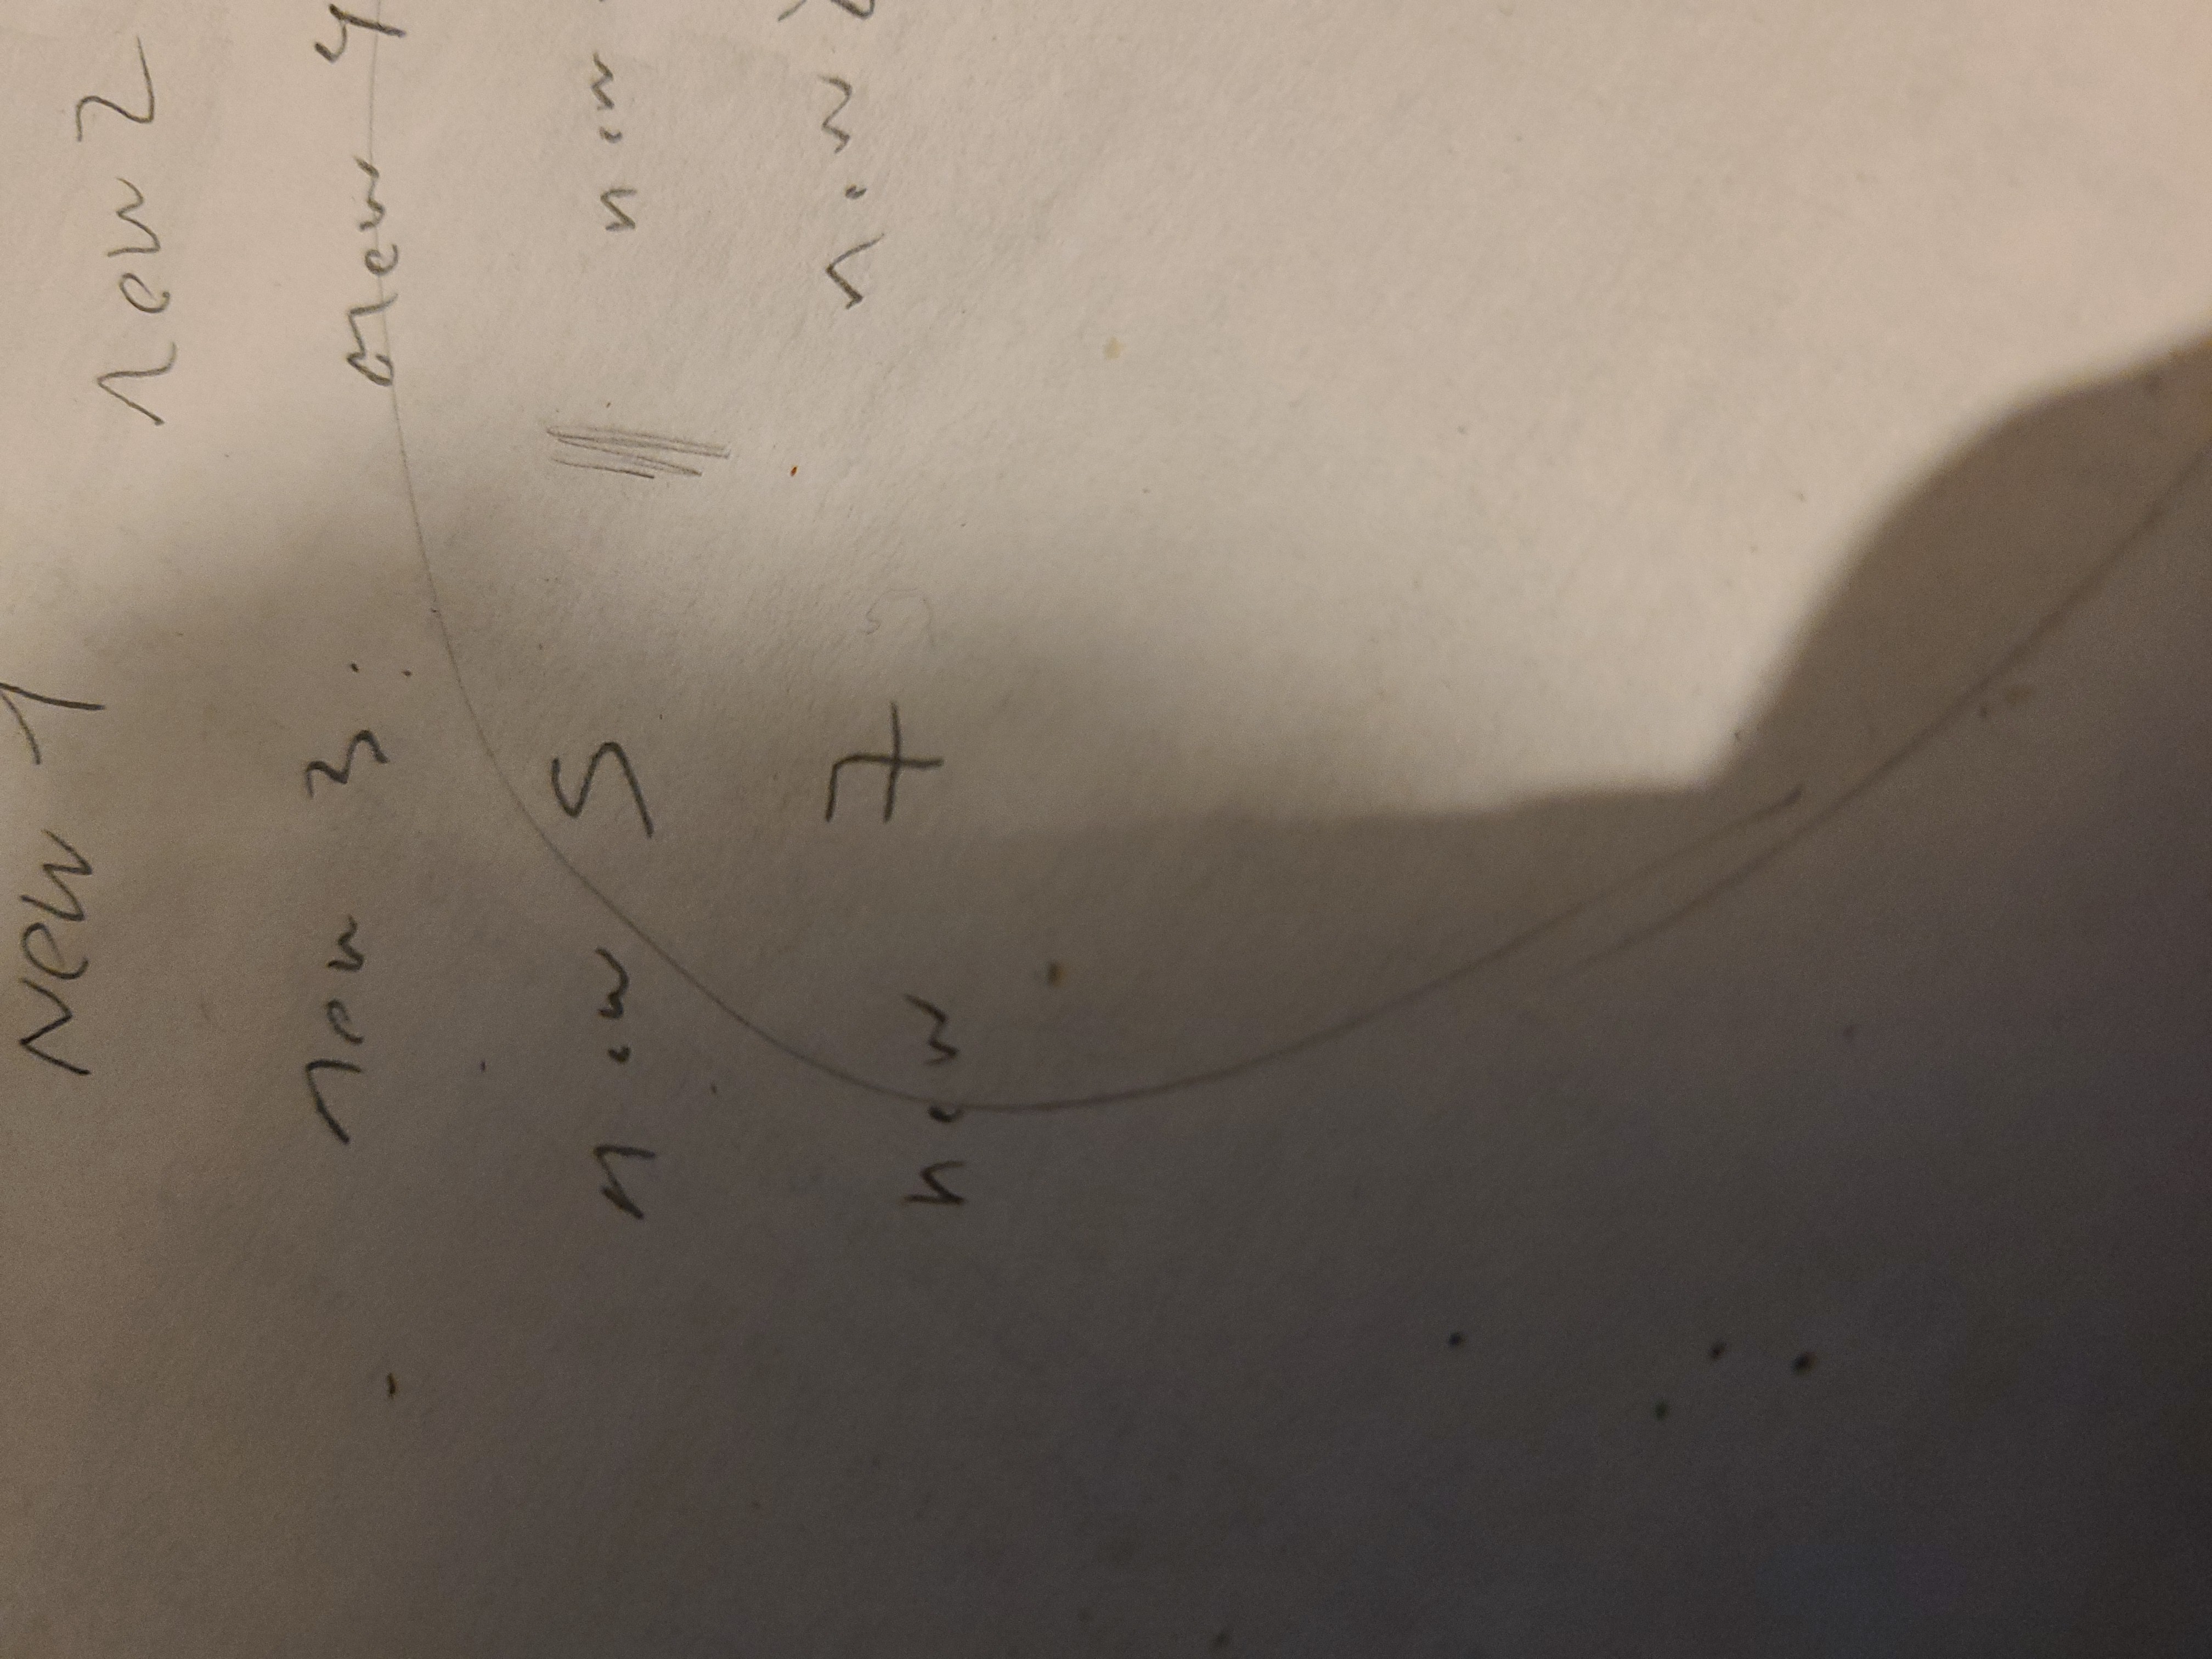 New 1
new 2
new 3.
new 4
new 5
new
new 7
new